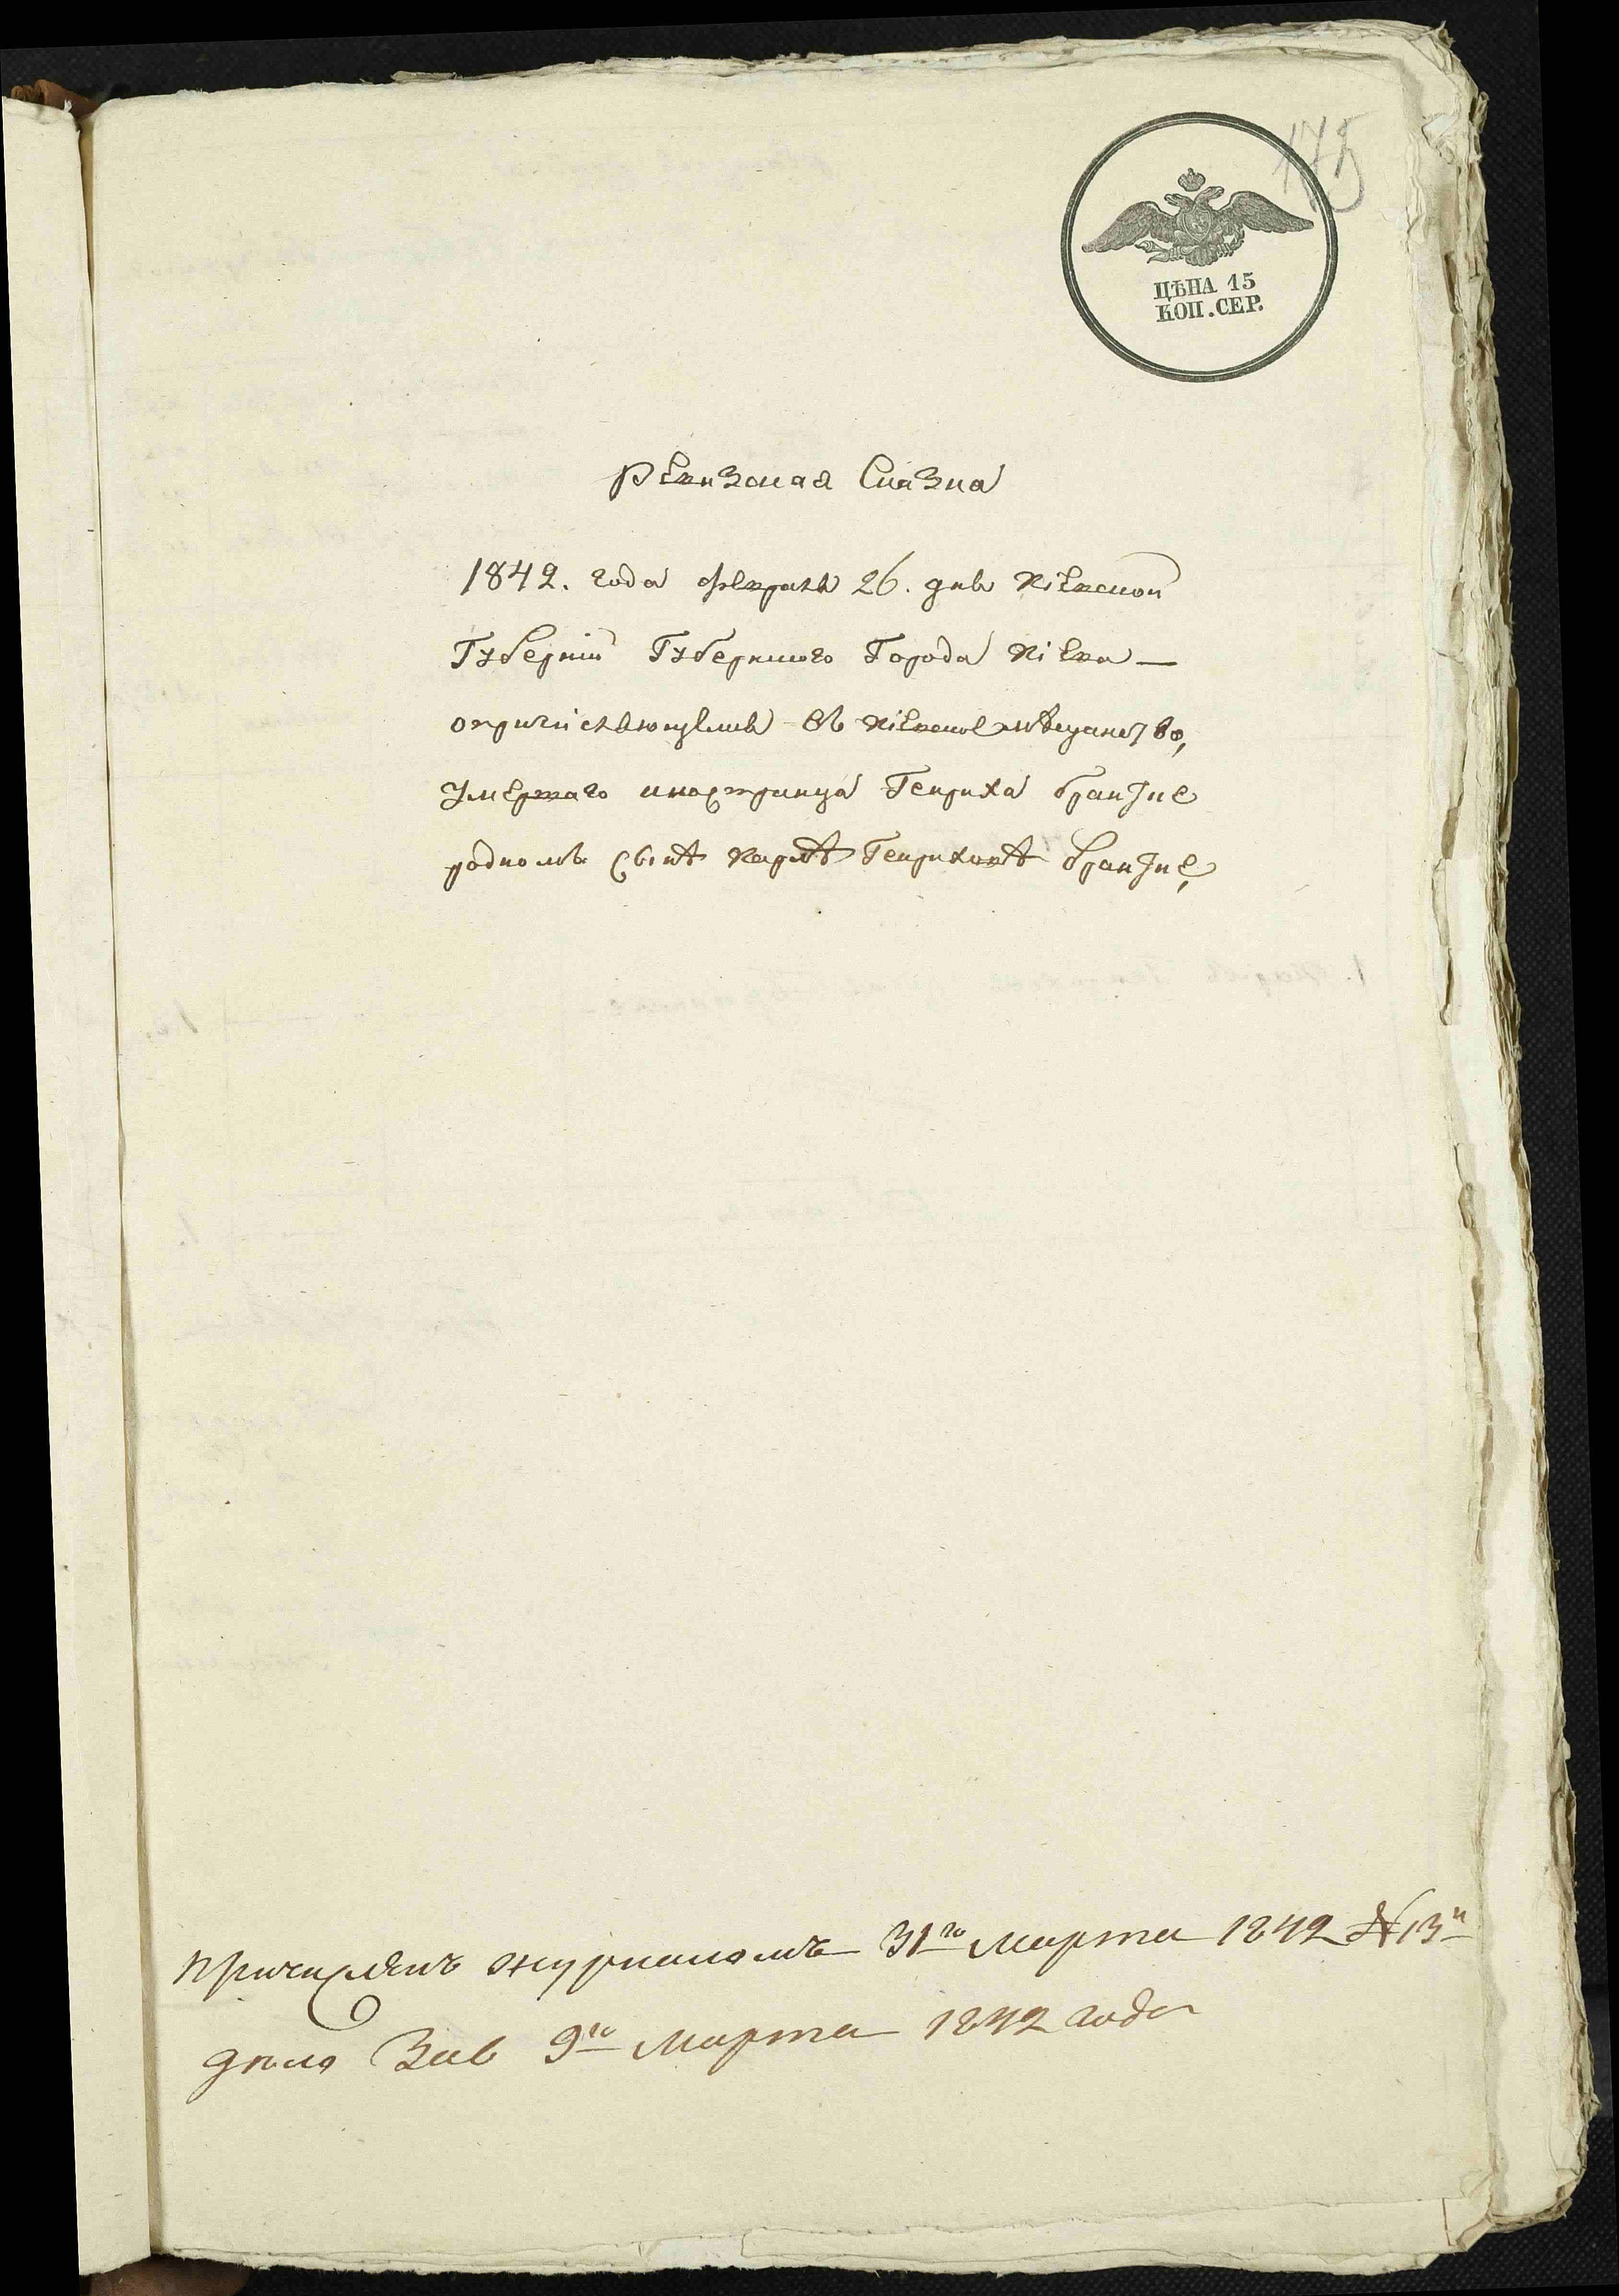 175
ЦѢНА 15
КОП. СЕР.
Ревизская Сказка
1842. года февраля 26. дня Кіевской
Губерніи Губернскаго Города Кіева —
опричисляющемся въ Кіевское мѣщанство,
умершаго иностранца Генриха Брантне
родномъ сынѣ Карлѣ Генриховѣ Брантне,
Причисленъ журналомъ 31го Марта 1842 №13й
дѣло 9го Марта 1842 года